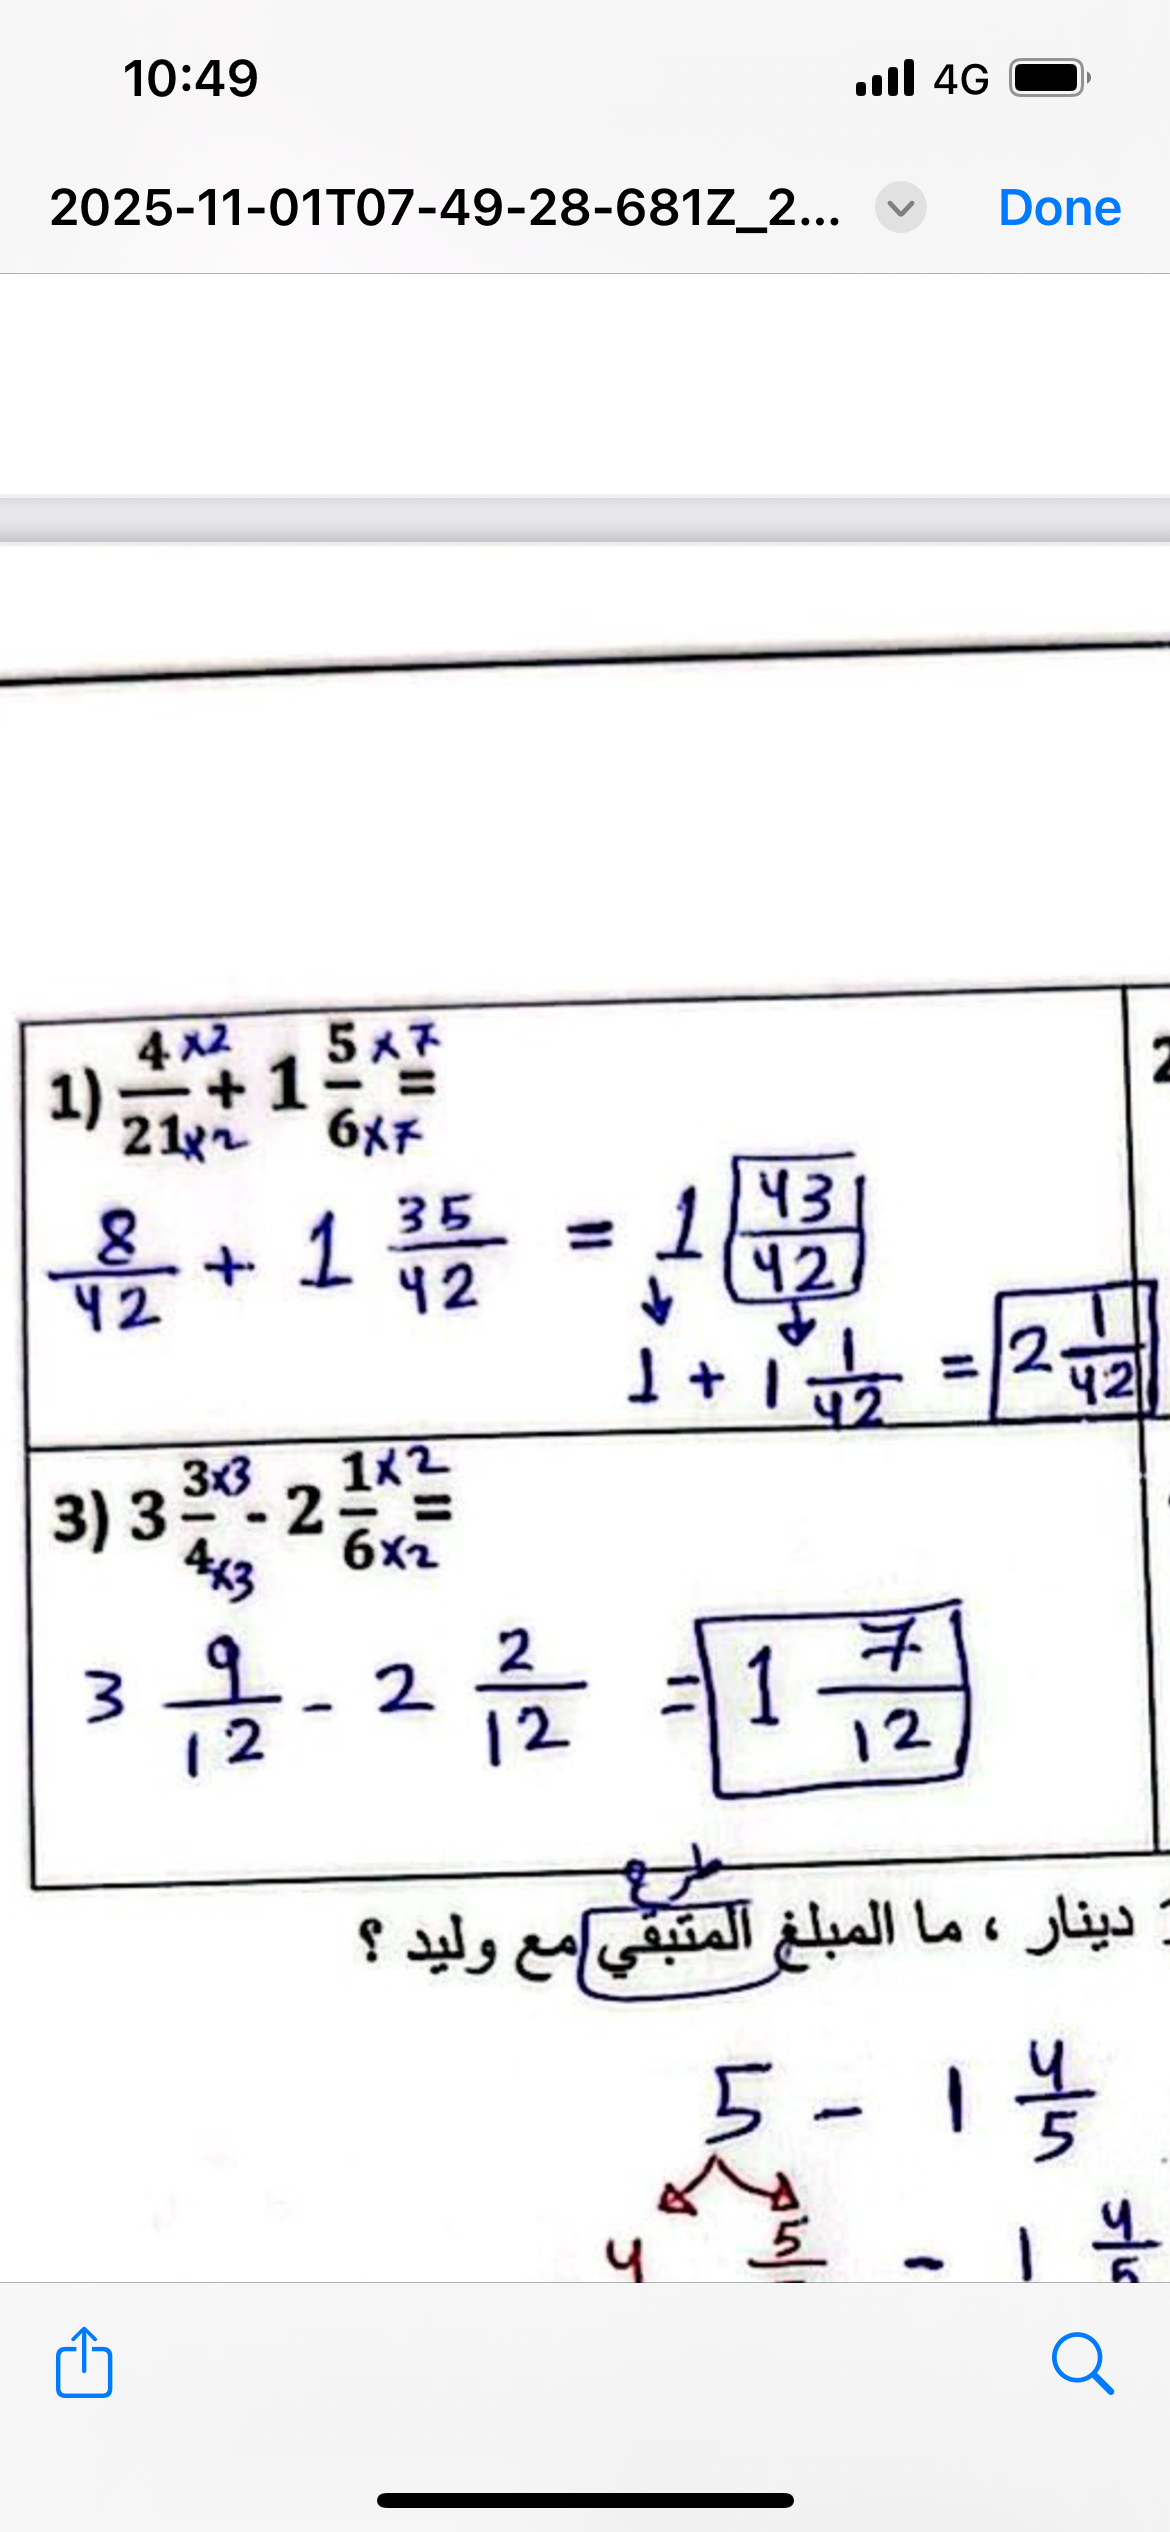 10:49 4G
2025-11-01T07-49-28-681Z_2... Done
1) 4/21 ×2/×2 + 1 5/6 ×7/×7 =
8/42 + 1 35/42 = 1 43/42
1 + 1 1/42 = 2 1/42
2
3) 3 3/4 ×3/×3 - 2 1/6 ×2/×2 =
3 9/12 - 2 2/12 = 1 7/12
طرح
دينار ، ما المبلغ المتبقي مع وليد ؟
5 - 1 4/5
4 5 - 1 4/5